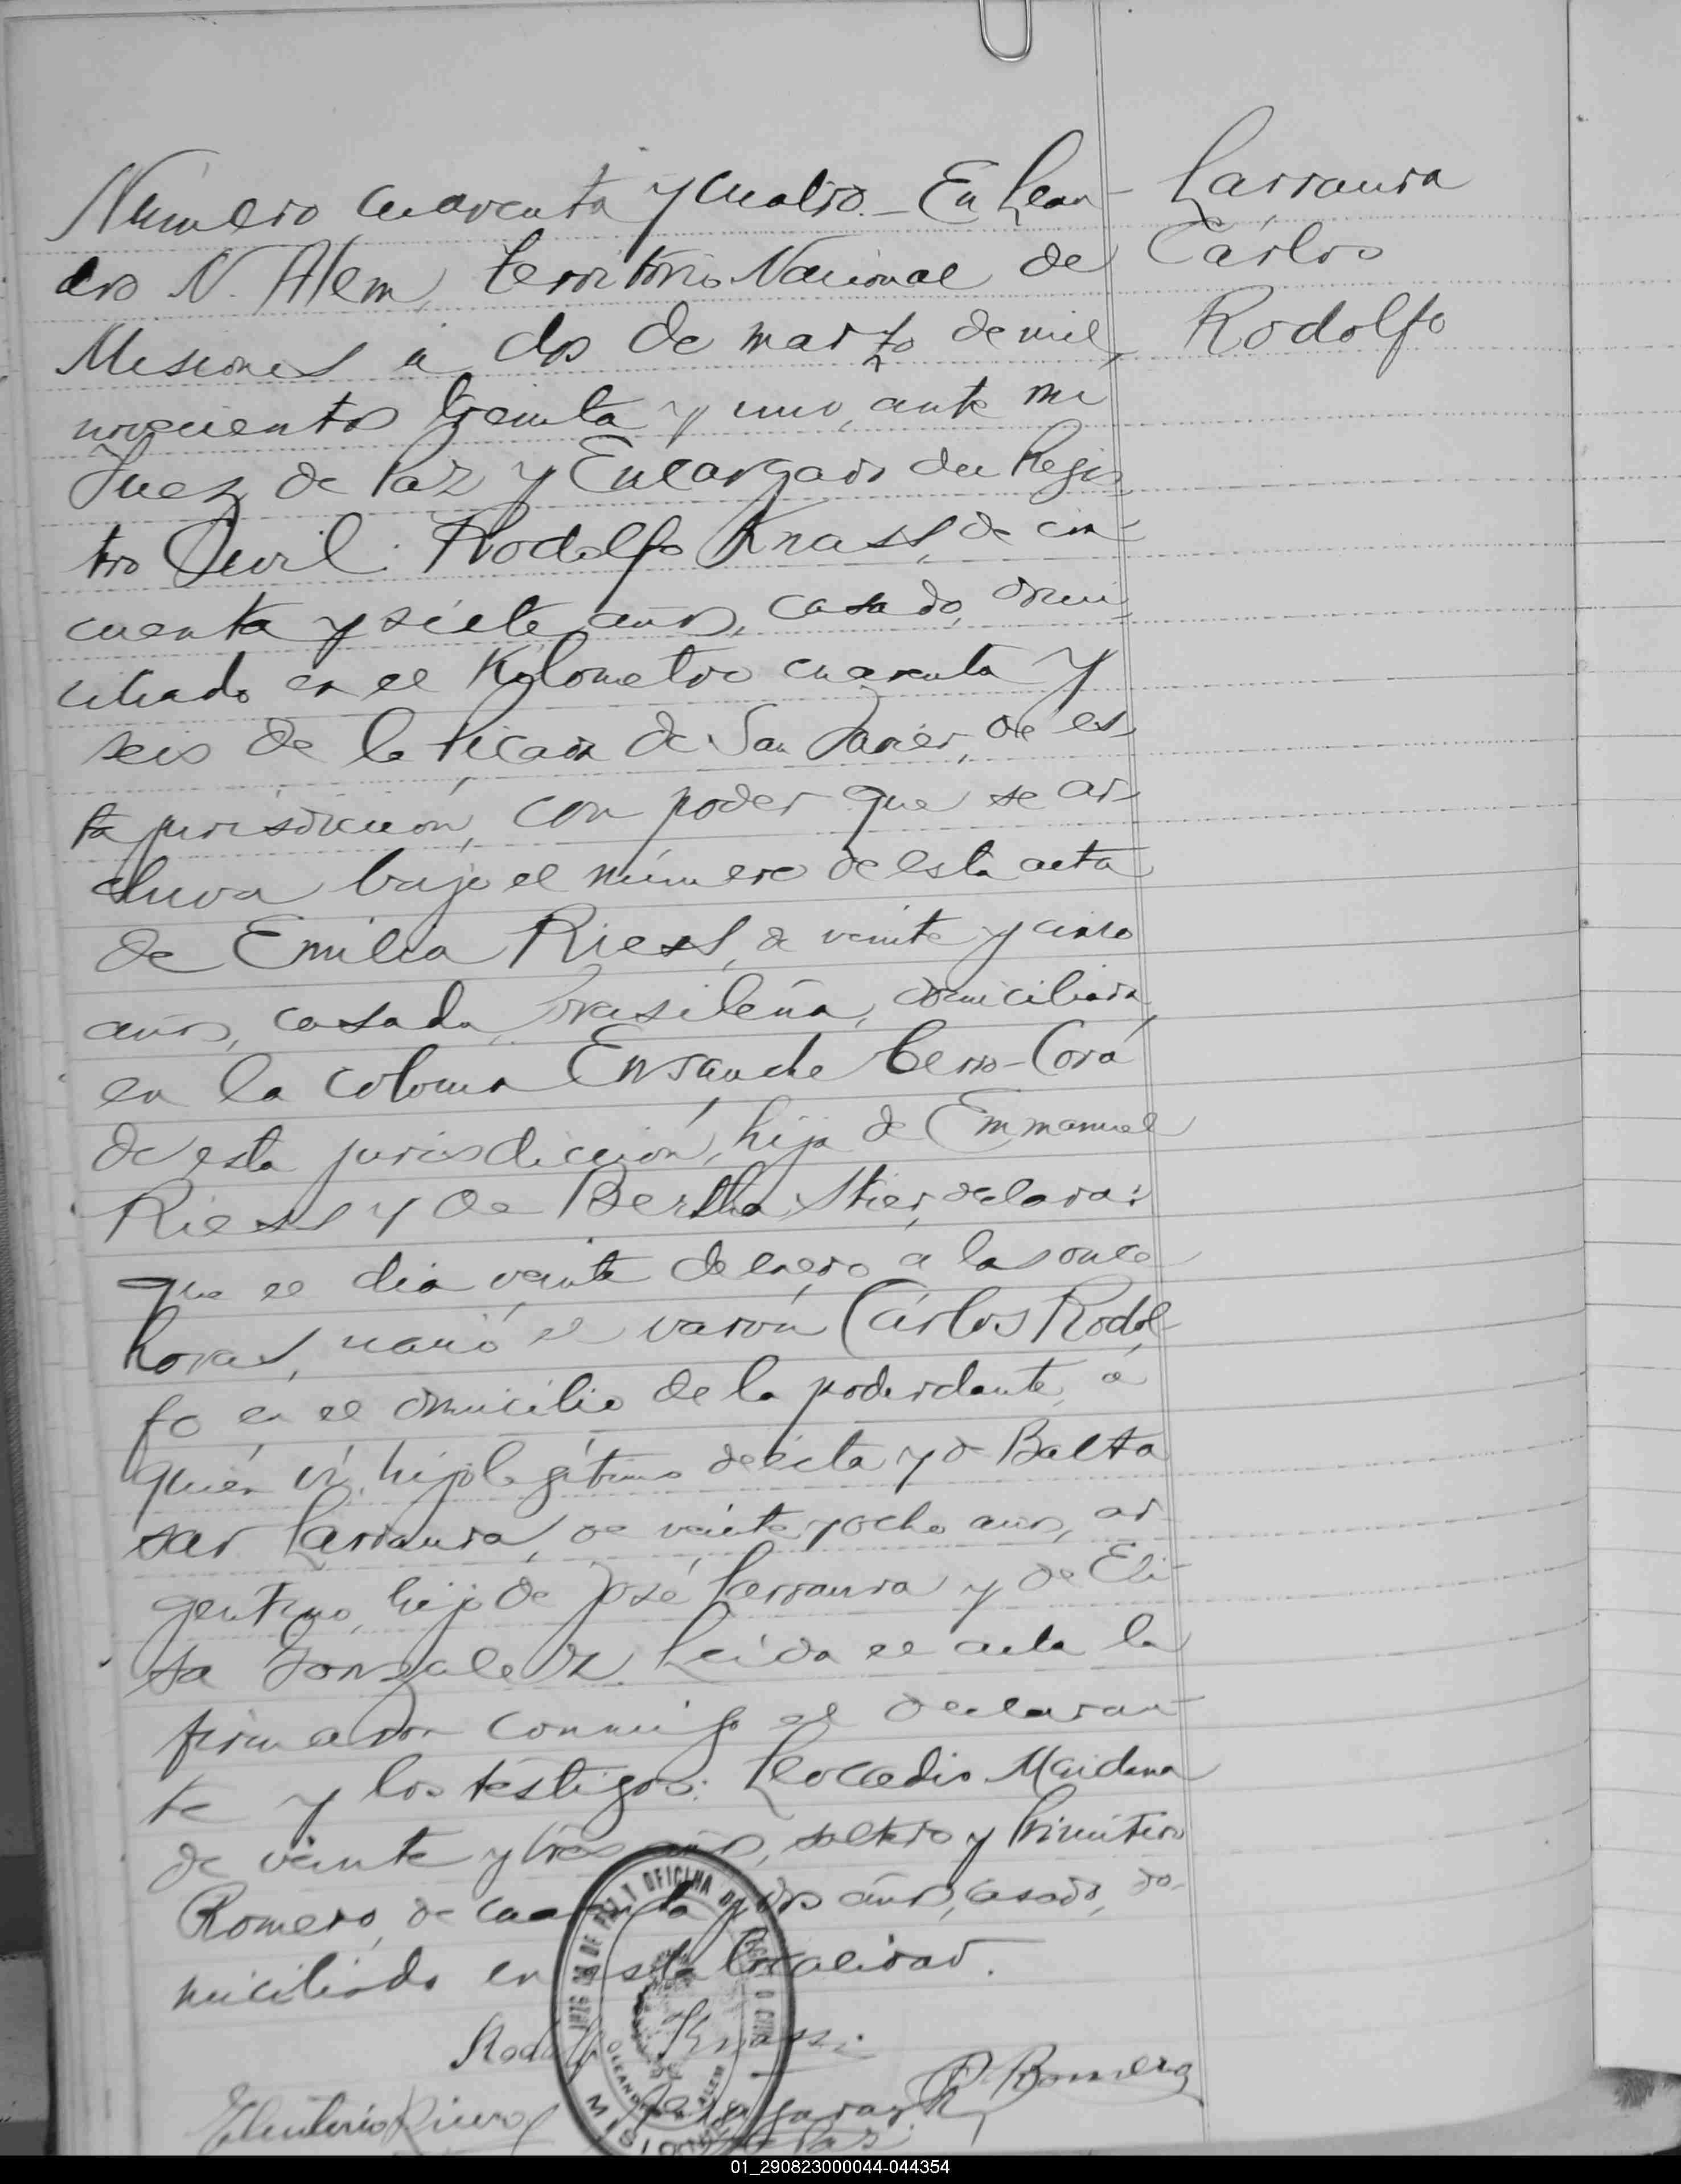 Número cuarenta y cuatro.- En Lean-
dro N. Alem, territorio Nacional de
Misiones a dos de marzo de mil
novecientos treinta y uno, ante mi
Juez de Paz y Encargado del Regis
tro Civil: Rodolfo Knass, de cin-
cuenta y siete años, casado, domi
ciliado en el Kilometro cuarenta y
seis de la Picada de San Javier, de es
ta jurisdicción, con poder que se ar-
chiva bajo el número de esta acta
de Emilia Riess, de veinte y cinco
años, casada, brasileña, domiciliada
en la colonia Ensanche Cerro-Corá
de esta jurisdicción, hija de Emmanuel
Riess y de Bertha Stier, declara:
que el dia veinte de enero a las once
horas, nació el varón Cárlos Rodol-
fo en el domicilio de la poderdante, a
quién ví, hijo legítimo de ésta y de Balta
sar Larraura, de veinte y ocho años, ar-
gentino, hijo de José Larraura y de Eli-
sa Gonzalez. Leída el acta la
firmaron conmigo el declaran-
te y los testigos: Leocadio Maidana
de veinte y tres años, soltero y Primitivo
Romero, de cuarenta y dos años, casado, do-
miciliado en esta localidad.
Larraura
Cárlos
Rodolfo
Rodolfo Knass
P. Romero
JUZGADO DE PAZ Y OFICINA DEL REGISTRO CIVIL
LEANDRO N. ALEM
MISIONES
01_290823000044-044354